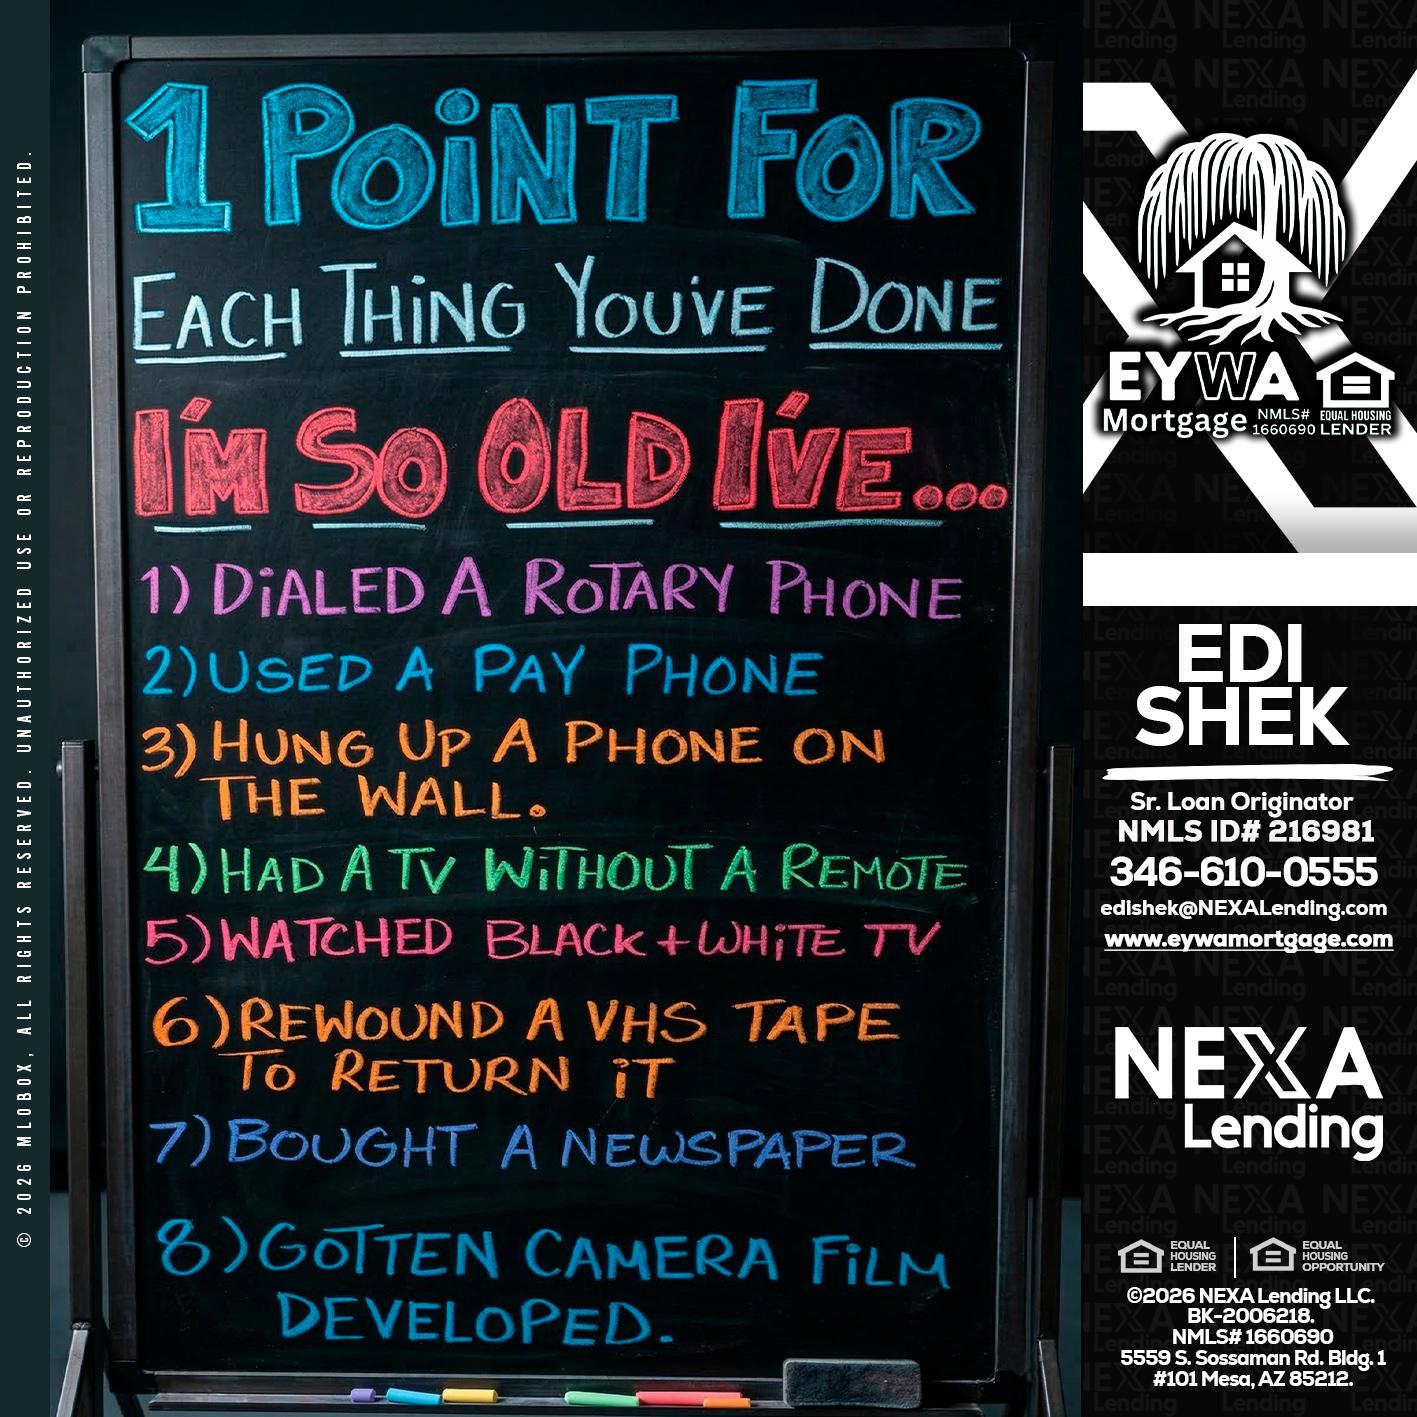 © 2026 MLOBOX, ALL RIGHTS RESERVED. UNAUTHORIZED USE OR REPRODUCTION PROHIBITED.
1 POiNT FOR
EACH THiNG YOU'VE DONE
I'M SO OLD I'VE...
1) DiALED A ROTARY PHONE
2) USED A PAY PHONE
3) HUNG UP A PHONE ON
THE WALL.
4) HAD A TV WiTHOUT A REMOTE
5) WATCHED BLACK + WHiTE TV
6) REWOUND A VHS TAPE
TO RETURN iT
7) BOUGHT A NEWSPAPER
8) GOTTEN CAMERA FiLM
DEVELOPED.
EYWA
Mortgage
NMLS#
1660690
EQUAL HOUSING
LENDER
EDI
SHEK
Sr. Loan Originator
NMLS ID# 216981
346-610-0555
edishek@NEXALending.com
www.eywamortgage.com
NEXA
Lending
EQUAL
HOUSING
LENDER
EQUAL
HOUSING
OPPORTUNITY
©2026 NEXA Lending LLC.
BK-2006218.
NMLS# 1660690
5559 S. Sossaman Rd. Bldg. 1
#101 Mesa, AZ 85212.